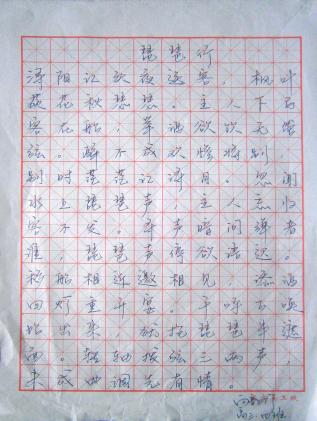 琵琶行
浔阳江头夜送客，枫叶
荻花秋瑟瑟。主人下马
客在船，举酒欲饮无管
弦。醉不成欢惨将别，
别时茫茫江浸月。忽闻
水上琵琶声，主人忘归
客不发。寻声暗问弹者
谁，琵琶声停欲语迟。
移船相近邀相见，添酒
回灯重开宴。千呼万唤
始出来，犹抱琵琶半遮
面。转轴拨弦三两声，
未成曲调先有情。
高三·四班